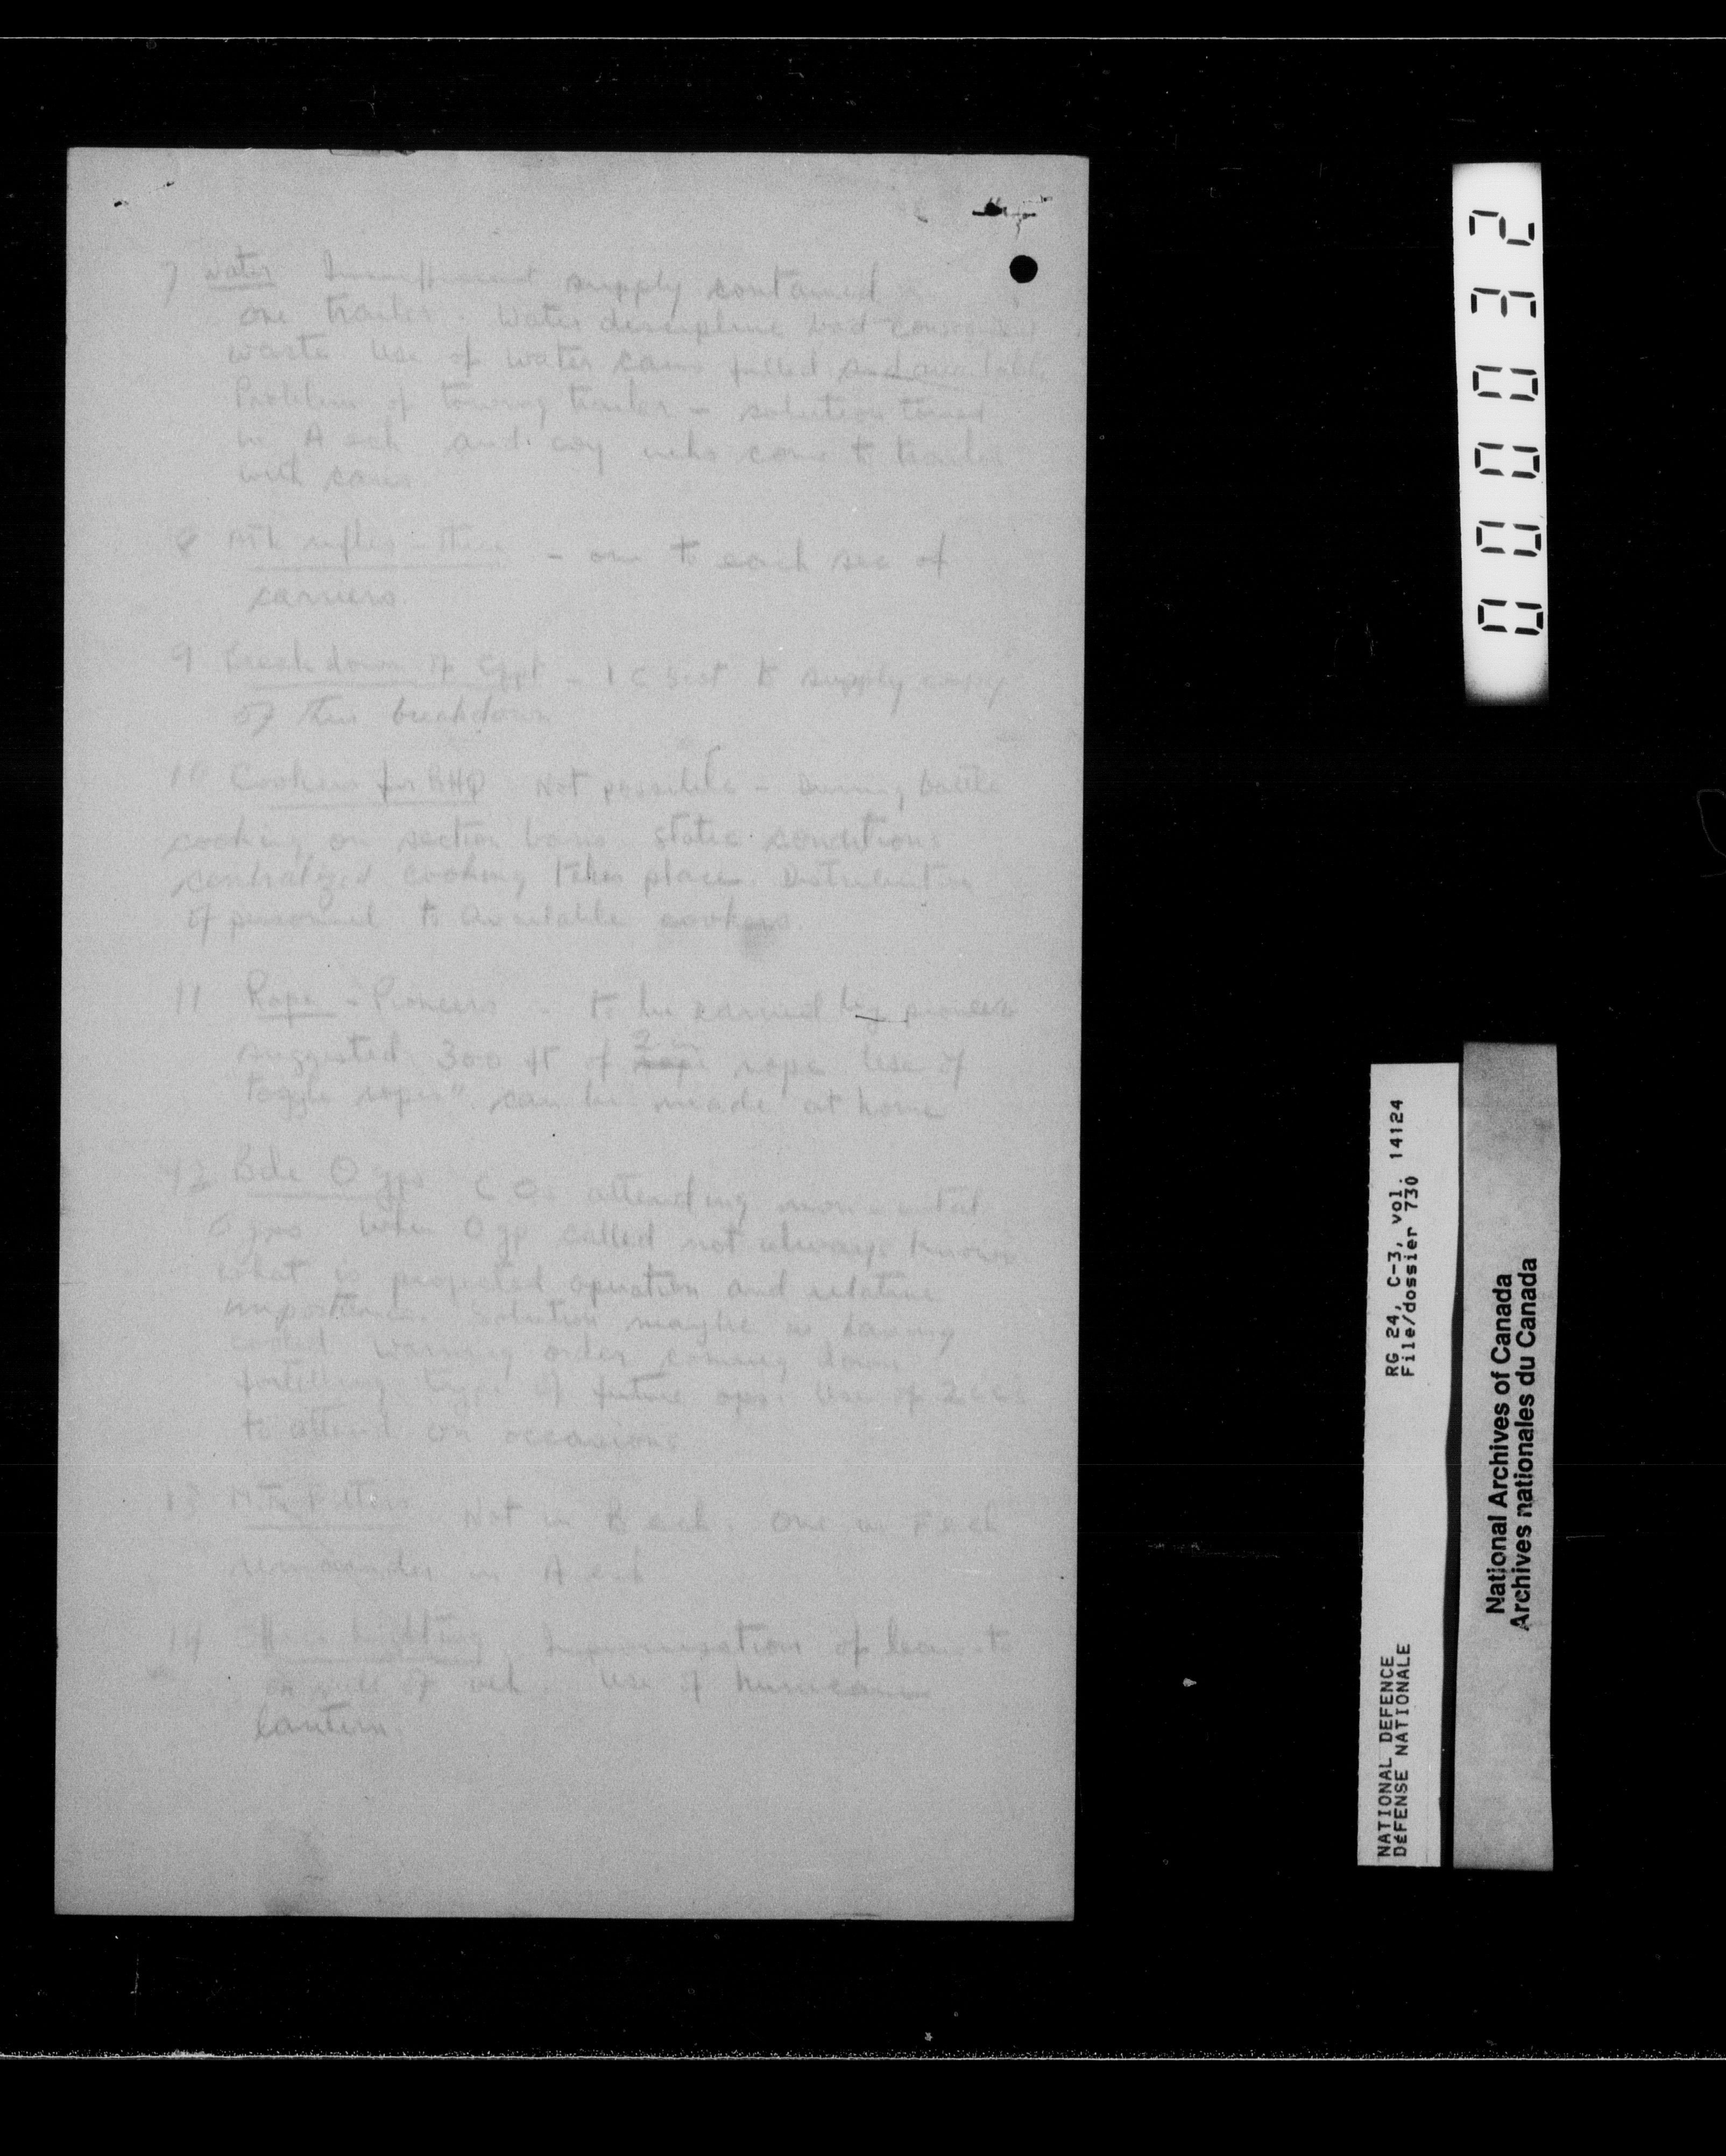 7 Water Insufficient supply contained
one trailer. Water discipline bad - consequent
waste Use of water cans filled and available
Problem of towing trailer - solution towed
in A ech and coy who come to trailer
with cans.
8 ATk rifles - three - one to each sec of
carriers.
9 Breakdown of Eqpt - to supply
of this breakdown
10 Cookers for BHQ Not possible - During battle
cooking on section basis static conditions
centralized cooking takes place. Distribution
of personnel to available cookers.
11 Rope - Pioneers - to be carried by pioneers
suggested 300 ft of 2 in rope Use of
"toggle ropes" can be made at home
12 Bde O gps C Os attending
O gps When O gp called not always known
what is projected operation and relative
importance. Solution maybe in having
warning order coming down
foretelling type of future ops. Use of 2 i c
to attend on occasions
13 Not in B ech. One in F ech
remainder in A ech
14 Office lighting Improvisation of lean-to
on side of veh. Use of hurricane
lantern.
000032
RG 24, C-3, vol. 14124
File/dossier 730
NATIONAL DEFENCE
DÉFENSE NATIONALE
National Archives of Canada
Archives nationales du Canada